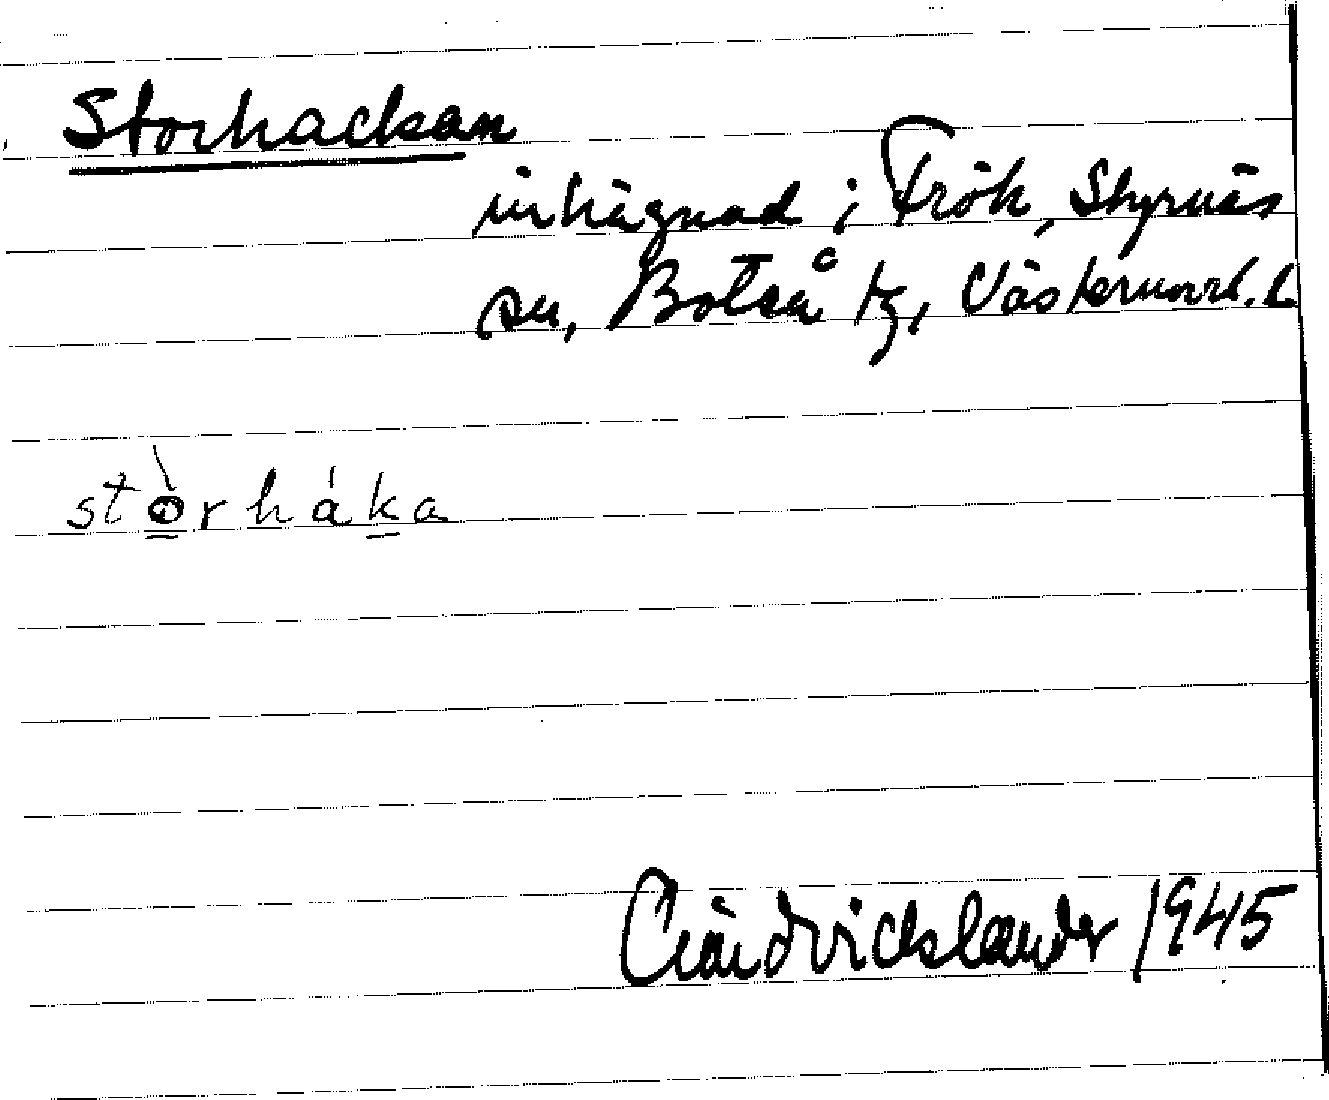 Storhackan
inhägnad i Frök, Skyrnäs
sn, Boteå tg, Västernorrl. L
stòrháka
Lundvickslander 1945